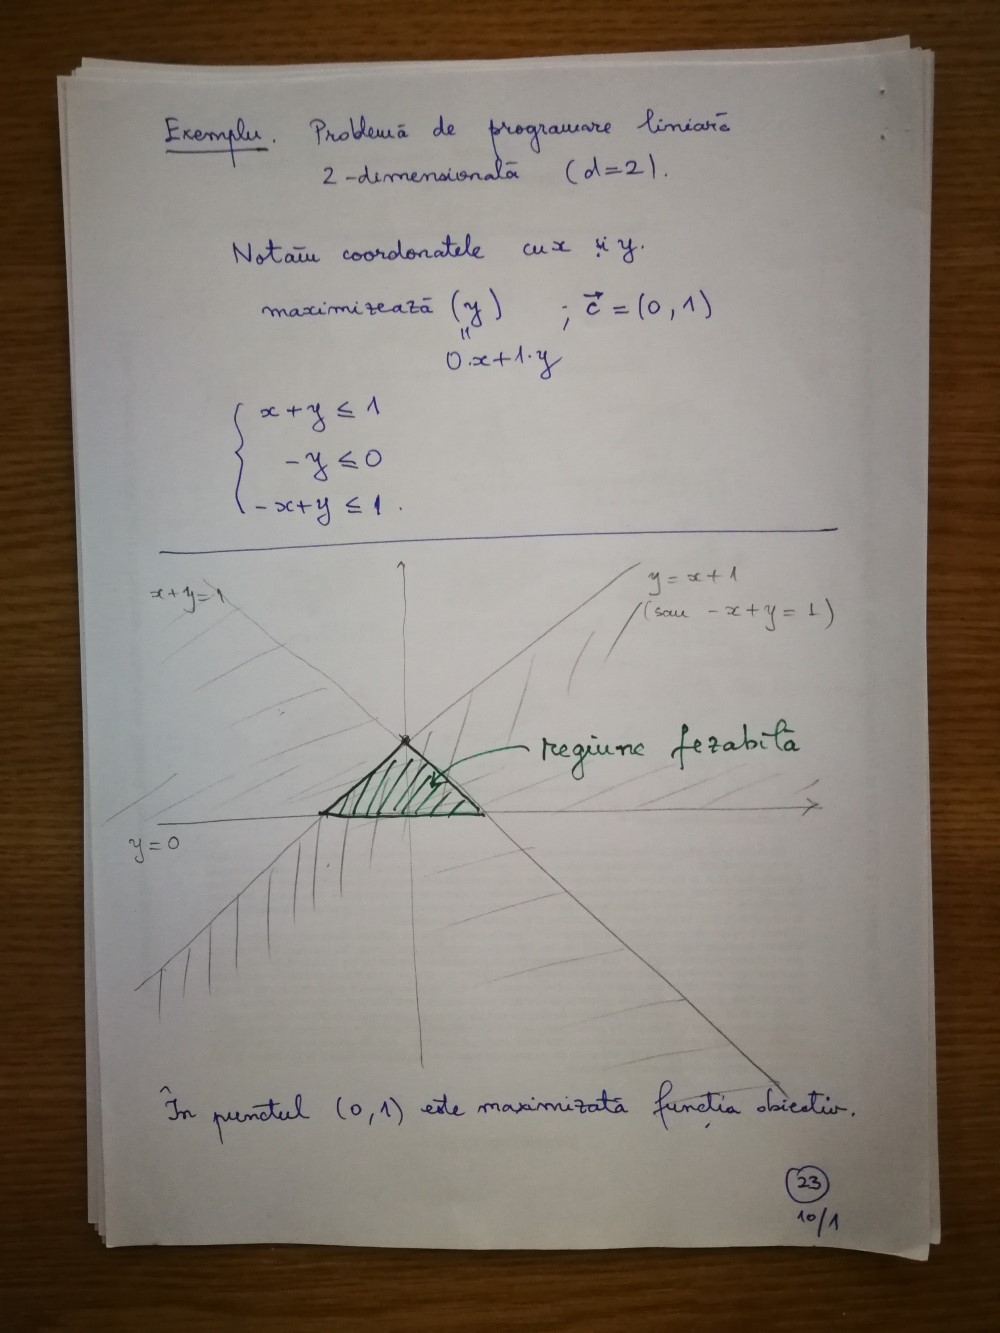 Exemplu. Problemă de programare liniară
2-dimensională (d=2).
Notăm coordonatele cu x și y.
maximizează (y) ; c⃗ = (0,1)
=
0·x+1·y
x+y ≤ 1
-y ≤ 0
-x+y ≤ 1.
x+y=1
y=x+1
(sau -x+y=1)
regiune fezabilă
y=0
În punctul (0,1) este maximizată funcția obiectiv.
23
10/1